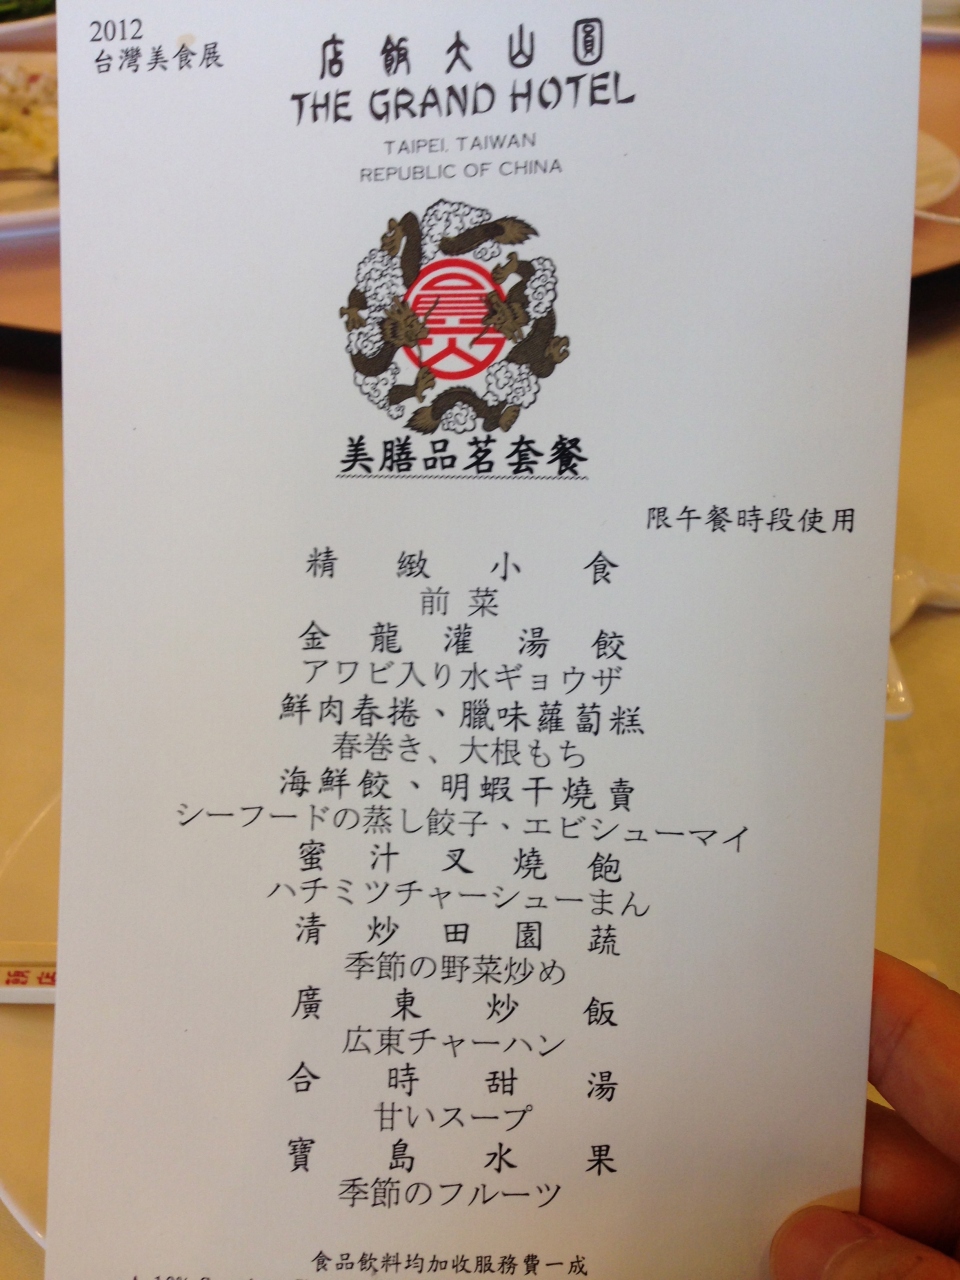 2012
台灣美食展
店飯大山圓
THE GRAND HOTEL
TAIPEI, TAIWAN
REPUBLIC OF CHINA
美膳品茗套餐
限午餐時段使用
精緻小食
前菜
金龍灌湯餃
アワビ入り水ギョウザ
鮮肉春捲、臘味蘿蔔糕
春巻き、大根もち
海鮮餃、明蝦干燒賣
シーフードの蒸し餃子、エビシューマイ
蜜汁叉燒飽
ハチミツチャーシューまん
清炒田園蔬
季節の野菜炒め
廣東炒飯
広東チャーハン
合時甜湯
甘いスープ
寶島水果
季節のフルーツ
食品飲料均加收服務費一成